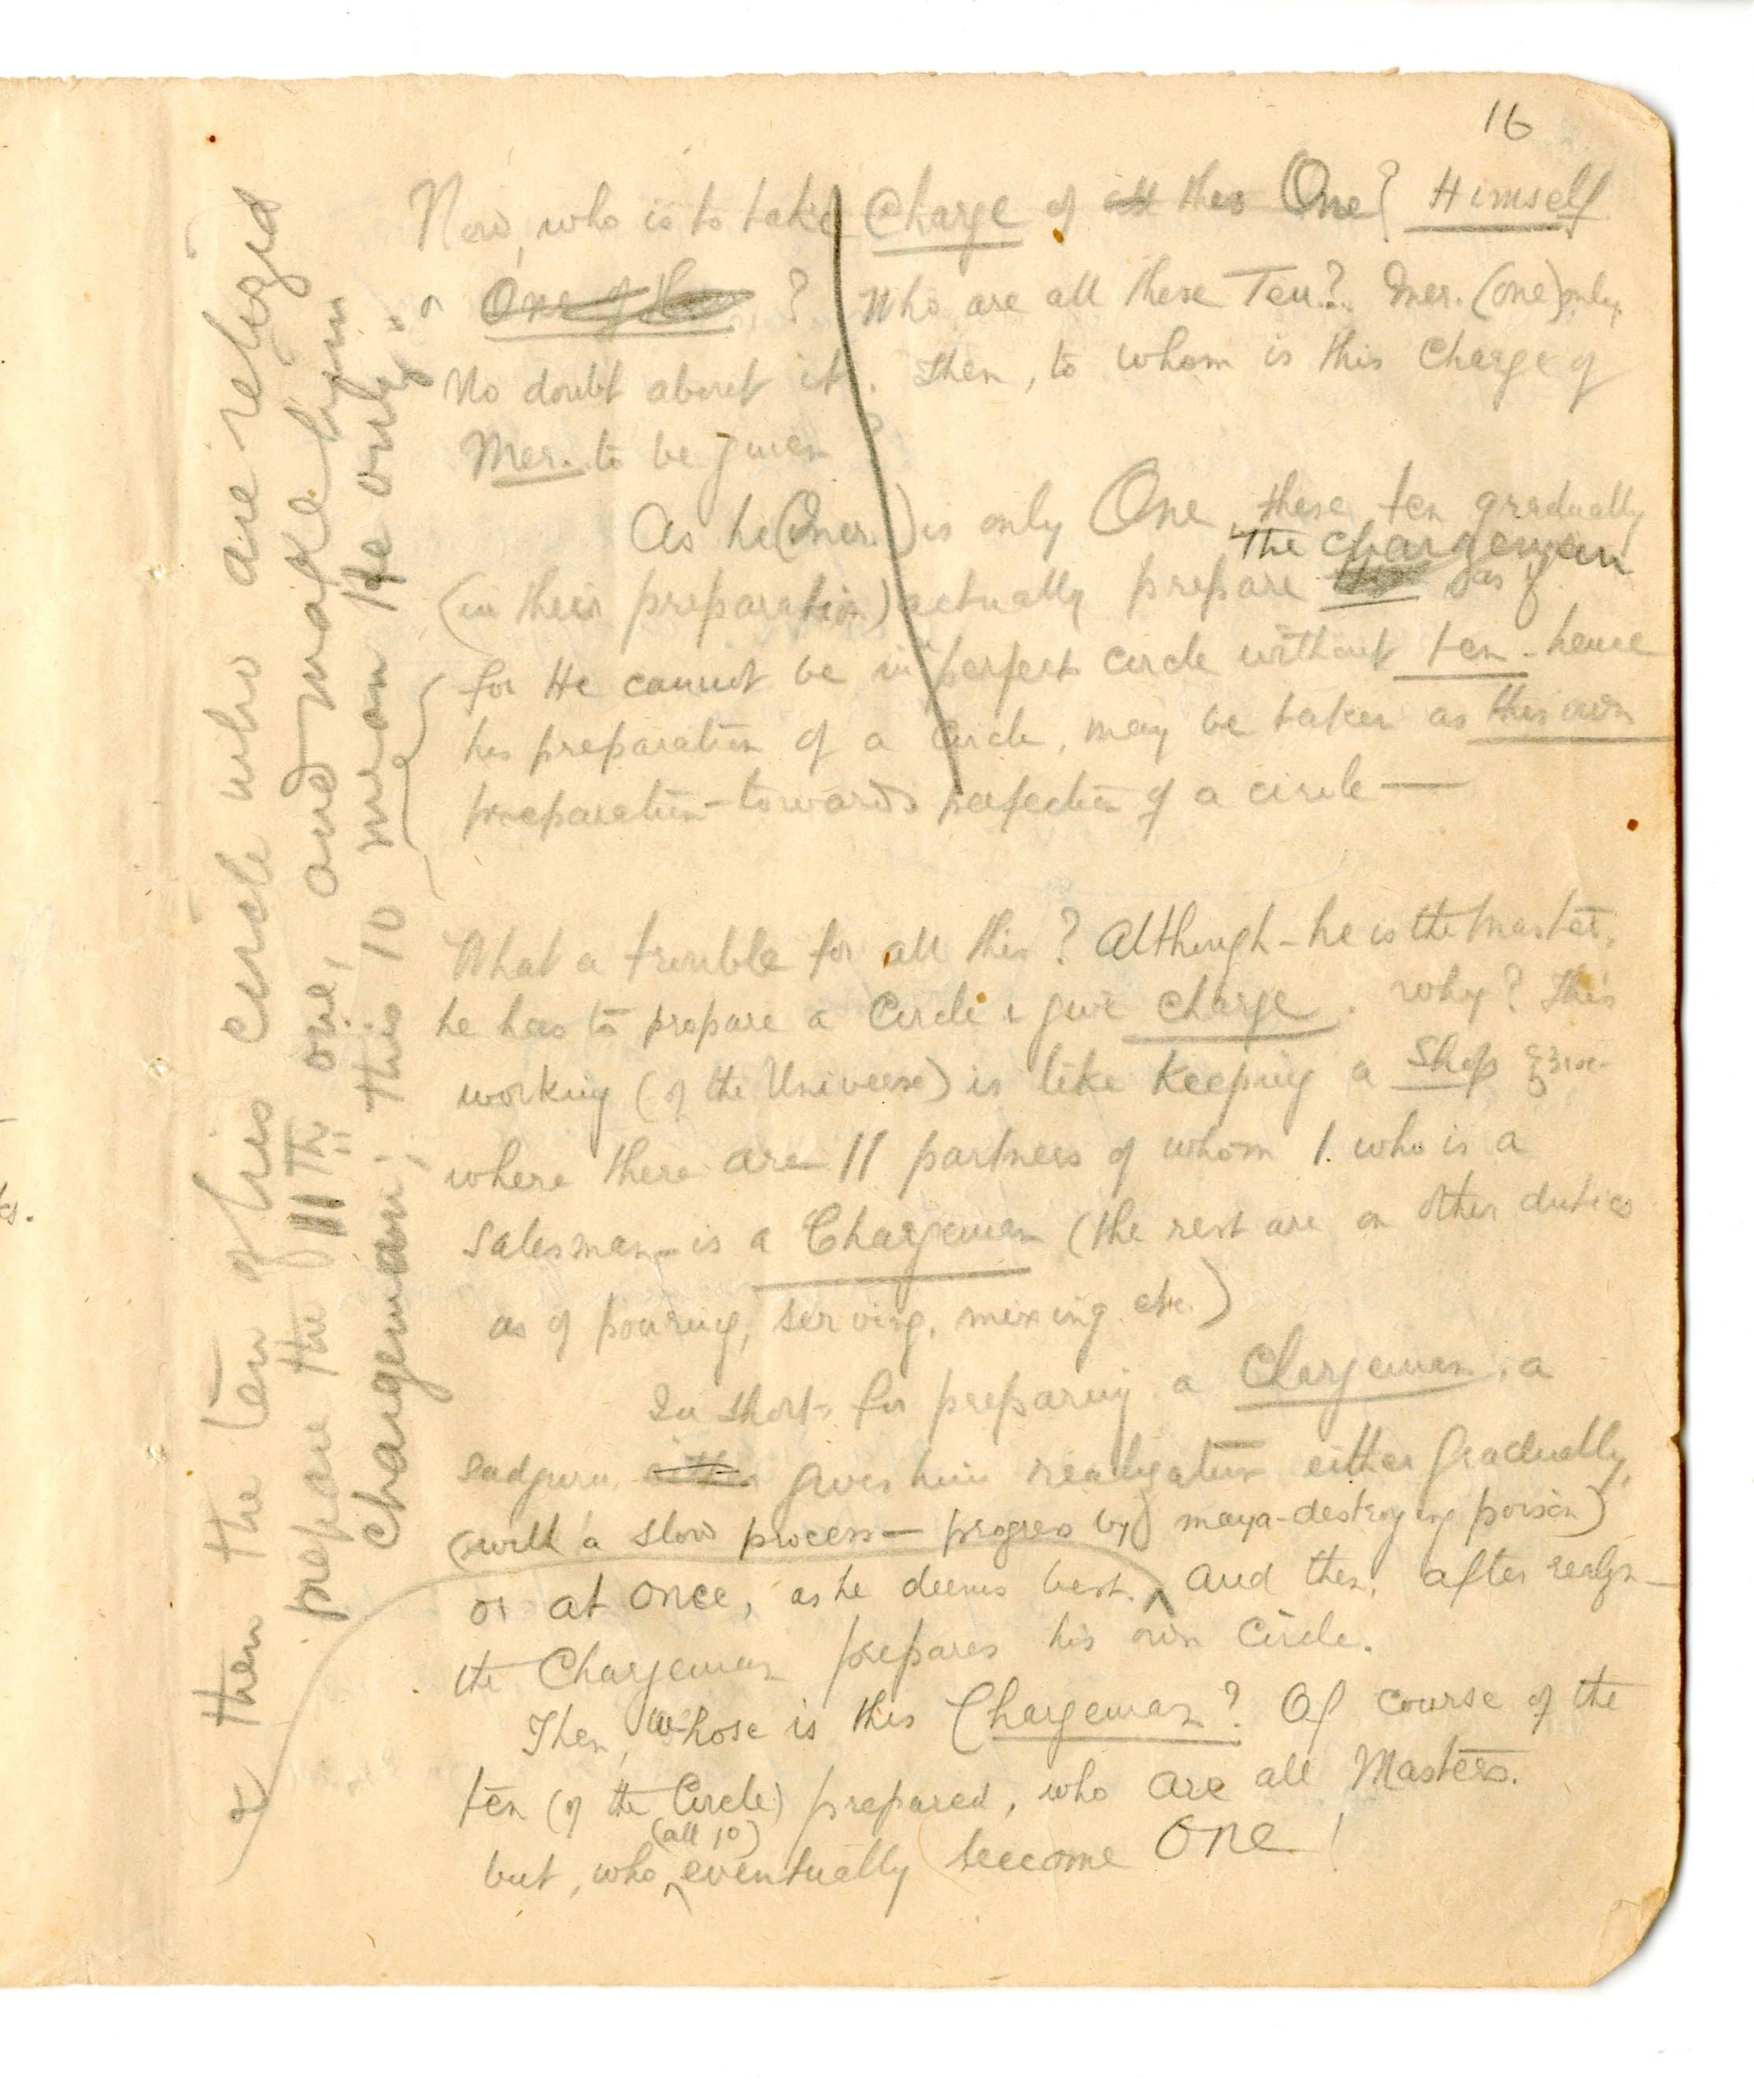 16
Now, who is to take charge of this One? Himself
One of the ? Who are all these Ten? Mer. (one) only.
No doubt about it. Then, to whom is this charge of
Mer. to be given
As he (Mer.) is only One, these ten gradually
the chargeman
(in their preparation) actually prepare as if
for He cannot be in perfect circle without ten - hence
his preparation of a circle, may be taken as this own
preparation - towards perfection of a circle —
What a trouble for all this? Although - he is the Master,
he has to prepare a Circle & give charge. Why? This
working (of the Universe) is like keeping a Shop
where there are 11 partners of whom 1. who is a
salesman - is a Chargeman (the rest are on other duties
as of pouring, serving, mixing etc.)
In short, for preparing a Chargeman, a
sadguru gives him realization either gradually,
(with a slow process — progress by maya-destroying poison)
or at once, as he deems best. And then, after realzn —
the Chargeman prepares his own Circle.
Then, whose is this Chargeman? Of course of the
ten (of the Circle) prepared, who are all Masters.
(all 10)
but, who eventually become One!
& then the ten of his circle who are relizid
prepare the 11th one, and make him
chargeman; this 10 mean He only"